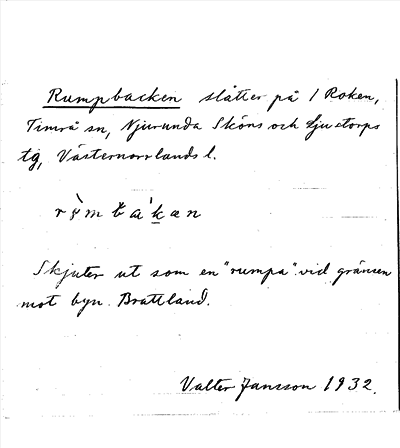 Rumpbacken slåtter på 1 Roken,
Timrå sn, Njurunda Sköns och Ljustorps
tg, Västernorrlands l.
Skjuter ut som en "rumpa" vid gränsen
mot byn Brattland.
Valter Jansson 1932.